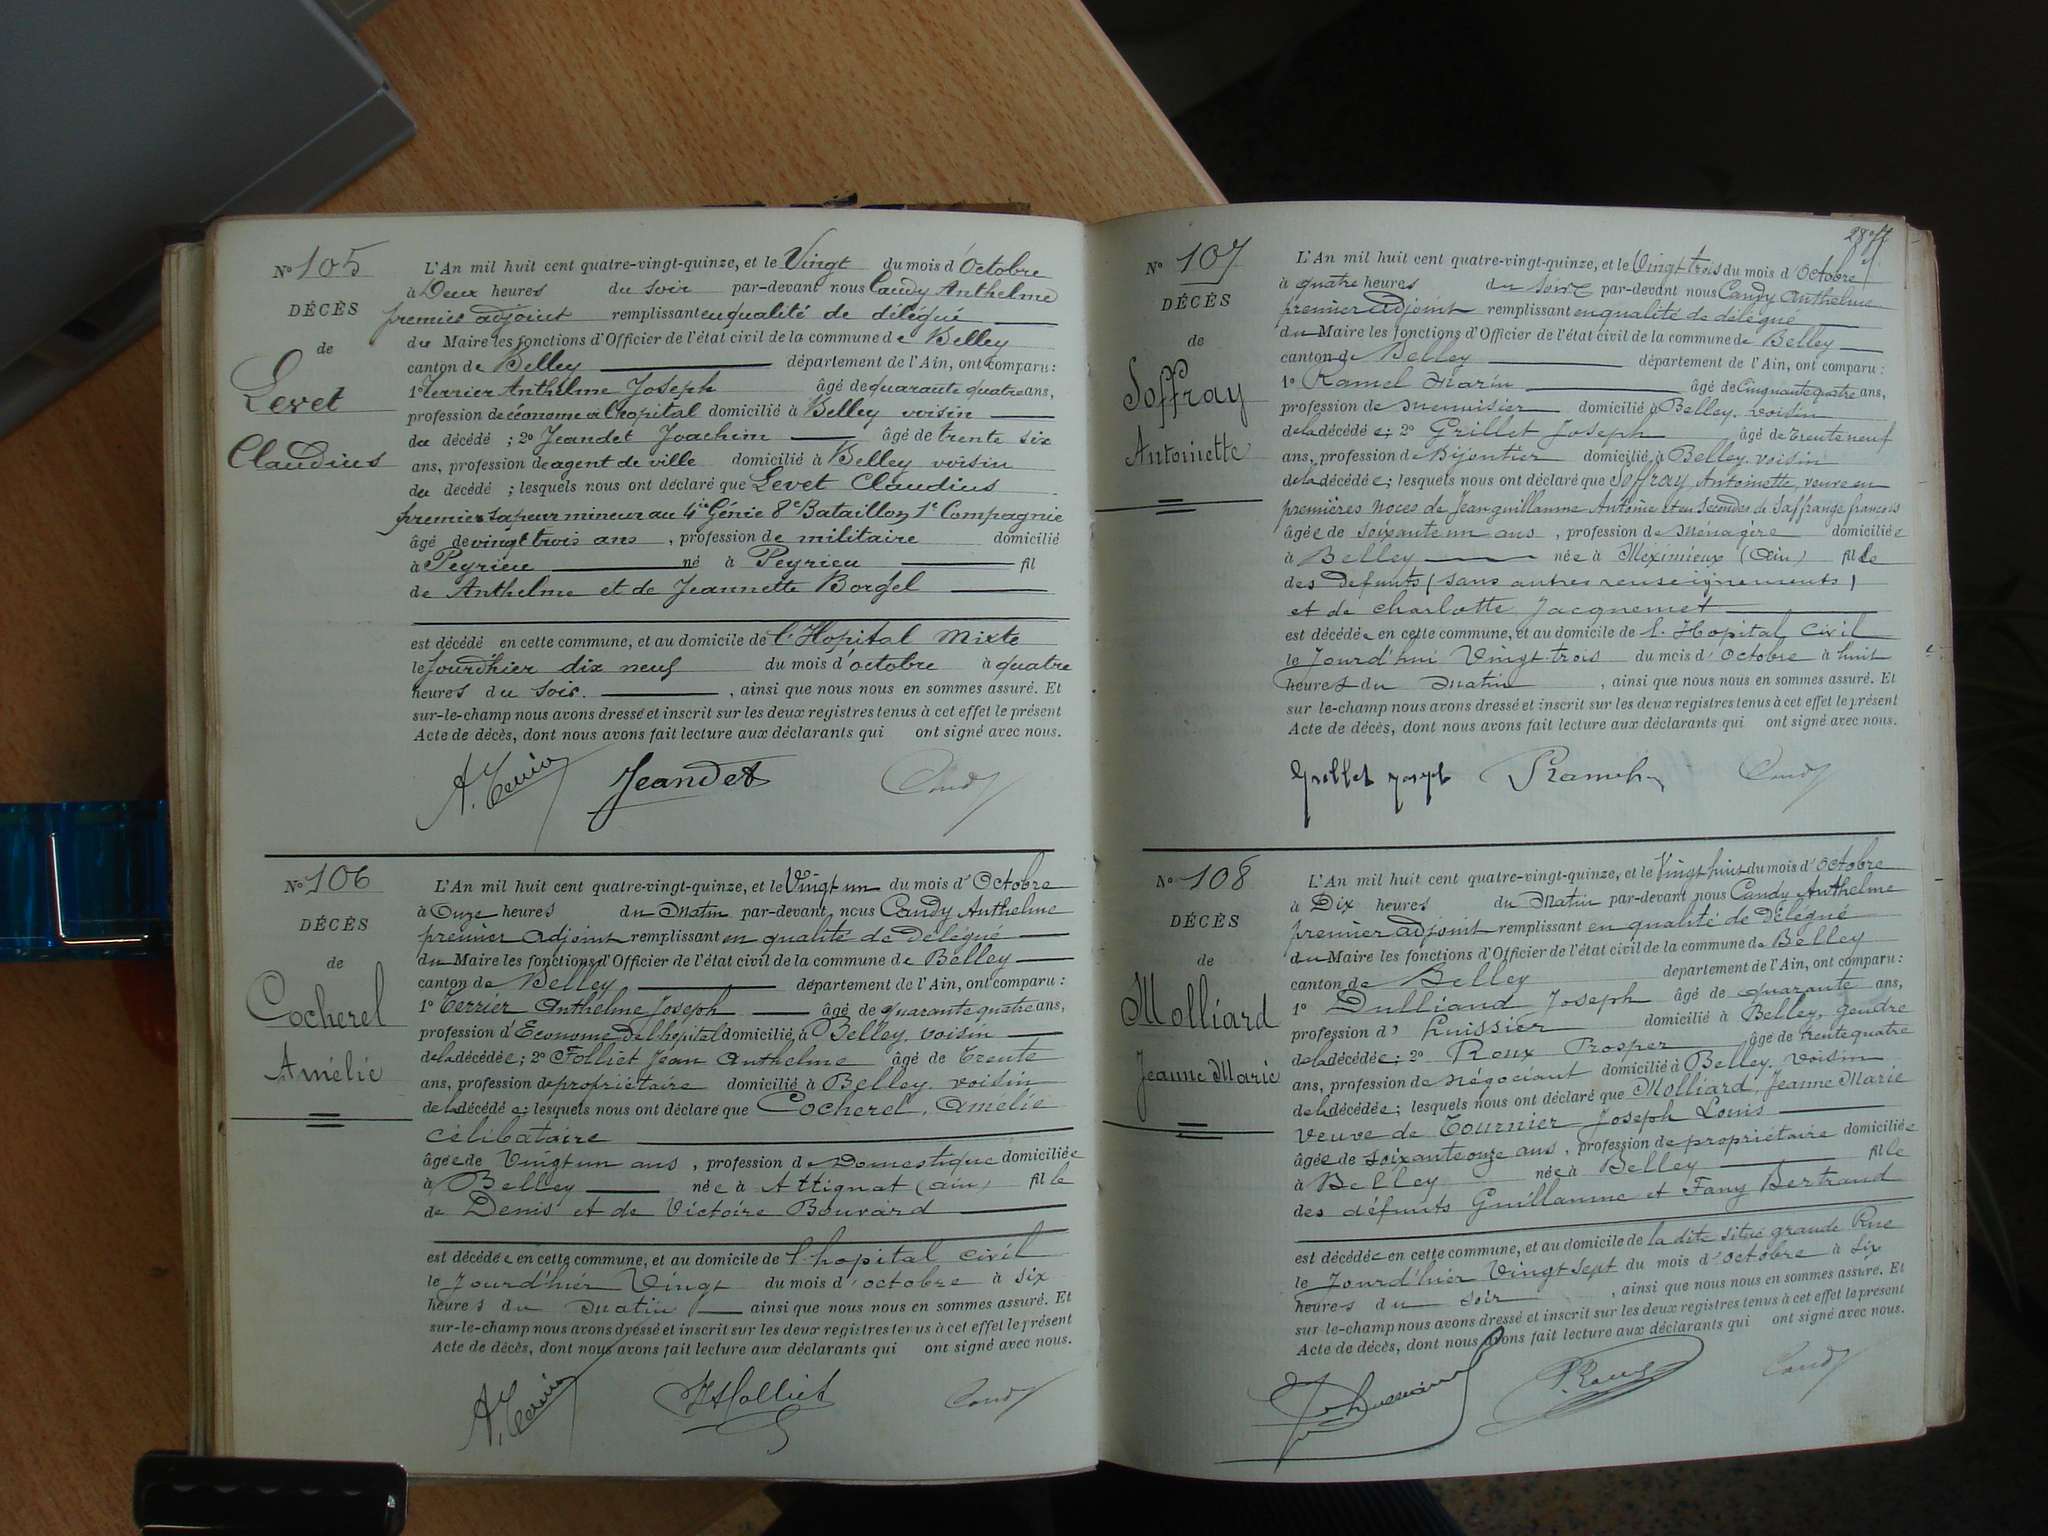 Nº 105
DÉCÈS
de
Levet
Claudius
L'An mil huit cent quatre-vingt-quinze, et le Vingt du mois d'Octobre
à Deux heures du soir par-devant nous Candy Anthelme
premier adjoint remplissant en qualité de délégué
du Maire les fonctions d'Officier de l'état civil de la commune de Belley
canton de Belley département de l'Ain, ont comparu :
1º Terrier Anthelme Joseph âgé de quarante quatre ans,
profession de économe à l'hopital domicilié à Belley voisin
du décédé ; 2º Jeandet Joachim âgé de trente six
ans, profession de agent de ville domicilié à Belley voisin
du décédé ; lesquels nous ont déclaré que Levet Claudius
premier sapeur mineur au 4ie Génie 8e Bataillon 1e Compagnie
âgé de vingt trois ans , profession de militaire domicilié
à Peyrieu né à Peyrieu fil
de Anthelme et de Jeannette Borgel
est décédé en cette commune, et au domicile de l'Hopital Mixte
le jourd'hier dix neuf du mois d'octobre à quatre
heures du soir. , ainsi que nous nous en sommes assuré. Et
sur-le-champ nous avons dressé et inscrit sur les deux registres tenus à cet effet le présent
Acte de décès, dont nous avons fait lecture aux déclarants qui ont signé avec nous.
A. Terrier Jeandet Candy
Nº 106
DÉCÈS
de
Cocherel
Amélie
L'An mil huit cent quatre-vingt-quinze, et le Vingt un du mois d'Octobre
à Onze heures du Matin par-devant nous Candy Anthelme
premier adjoint remplissant en qualité de Délégué
du Maire les fonctions d'Officier de l'état civil de la commune de Belley
canton de Belley département de l'Ain, ont comparu :
1º Terrier Anthelme Joseph âgé de quarante quatre ans,
profession d'Econome de l'hopital domicilié à Belley, voisin
de la décédée ; 2º Folliet Jean Anthelme âgé de Trente
ans, profession de propriétaire domicilié à Belley, voisin
de la décédée ; lesquels nous ont déclaré que Cocherel, Amélie
célibataire
âgée de Vingt un ans , profession de Domestique domiciliée
à Belley née à Attignat (Ain) fille
de Denis et de Victoire Bouvard
est décédée en cette commune, et au domicile de l'hopital civil
le Jourd'hier Vingt du mois d'octobre à six
heures du Matin ainsi que nous nous en sommes assuré. Et
sur-le-champ nous avons dressé et inscrit sur les deux registres tenus à cet effet le présent
Acte de décès, dont nous avons fait lecture aux déclarants qui ont signé avec nous.
A. Terrier JAFolliet Candy
Nº 107
DÉCÈS
de
Soffray
Antoinette
L'An mil huit cent quatre-vingt-quinze, et le Vingt trois du mois d'Octobre
à quatre heures du soir par-devant nous Candy Anthelme
premier adjoint remplissant en qualité de délégué
du Maire les fonctions d'Officier de l'état civil de la commune de Belley
canton de Belley département de l'Ain, ont comparu :
1º Ramel Marin âgé de Cinquante quatre ans,
profession de menuisier domicilié à Belley, voisin
de la décédée ; 2º Grillet Joseph âgé de trente neuf
ans, profession de Bijoutier domicilié à Belley, voisin
de la décédée ; lesquels nous ont déclaré que Soffray Antoinette, veuve en
premières noces de Jean guillaume Antoine et en secondes de Saffrange françois
âgée de soixante un ans , profession de Ménagère domiciliée
à Belley née à Meximieux (Ain) fille
des Defunts (sans autres renseignements)
et de Charlotte Jacquemet
est décédée en cette commune, et au domicile de l'Hopital Civil
le Jourd'hui Vingt-trois du mois d'Octobre à huit
heures du Matin , ainsi que nous nous en sommes assuré. Et
sur le-champ nous avons dressé et inscrit sur les deux registres tenus à cet effet le présent
Acte de décès, dont nous avons fait lecture aux déclarants qui ont signé avec nous.
Grillet joseph Ramel Candy
Nº 108
DÉCÈS
de
Molliard
Jeanne Marie
L'An mil huit cent quatre-vingt-quinze, et le Vingt huit du mois d'Octobre
à Dix heures du Matin par-devant nous Candy Anthelme
premier adjoint remplissant en qualité de Délégué
du Maire les fonctions d'Officier de l'état civil de la commune de Belley
canton de Belley département de l'Ain, ont comparu :
1º Dulliand Joseph âgé de quarante ans,
profession d'huissier domicilié à Belley, gendre
de la décédée ; 2º Roux Prosper âgé de trente quatre
ans, profession de négociant domicilié à Belley, voisin
de la décédée ; lesquels nous ont déclaré que Molliard, Jeanne Marie
veuve de Tournier Joseph Louis
âgée de soixante onze ans , profession de propriétaire domiciliée
à Belley née à Belley fille
des défunts Guillaume et Fany Bertrand
est décédée en cette commune, et au domicile de la dite situé grande Rue
le Jourd'hier Vingt sept du mois d'octobre à six
heures du soir , ainsi que nous nous en sommes assuré. Et
sur-le-champ nous avons dressé et inscrit sur les deux registres tenus à cet effet le présent
Acte de décès, dont nous avons fait lecture aux déclarants qui ont signé avec nous.
P. Roux Candy